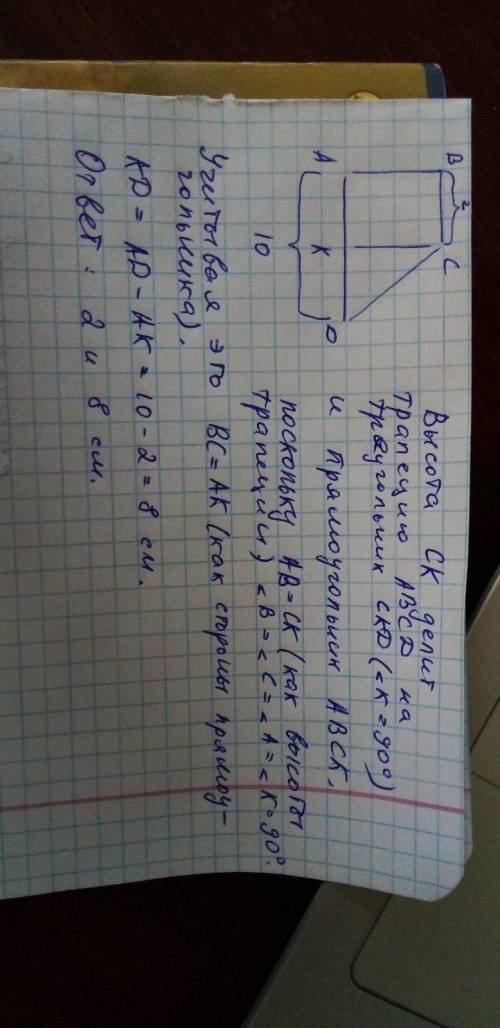 B 2 C
A K D
10
Высота СК делит
трапецию ABCD на
треугольник CKD (<K=90°)
и прямоугольник ABCK,
поскольку AB=CK (как высоты
трапеции) <B=<C=<A=<K=90°.
Учитывая это BC=AK (как стороны прямоу-
гольника),
KD = AD-AK=10-2=8 см.
Ответ: 2 и 8 см.